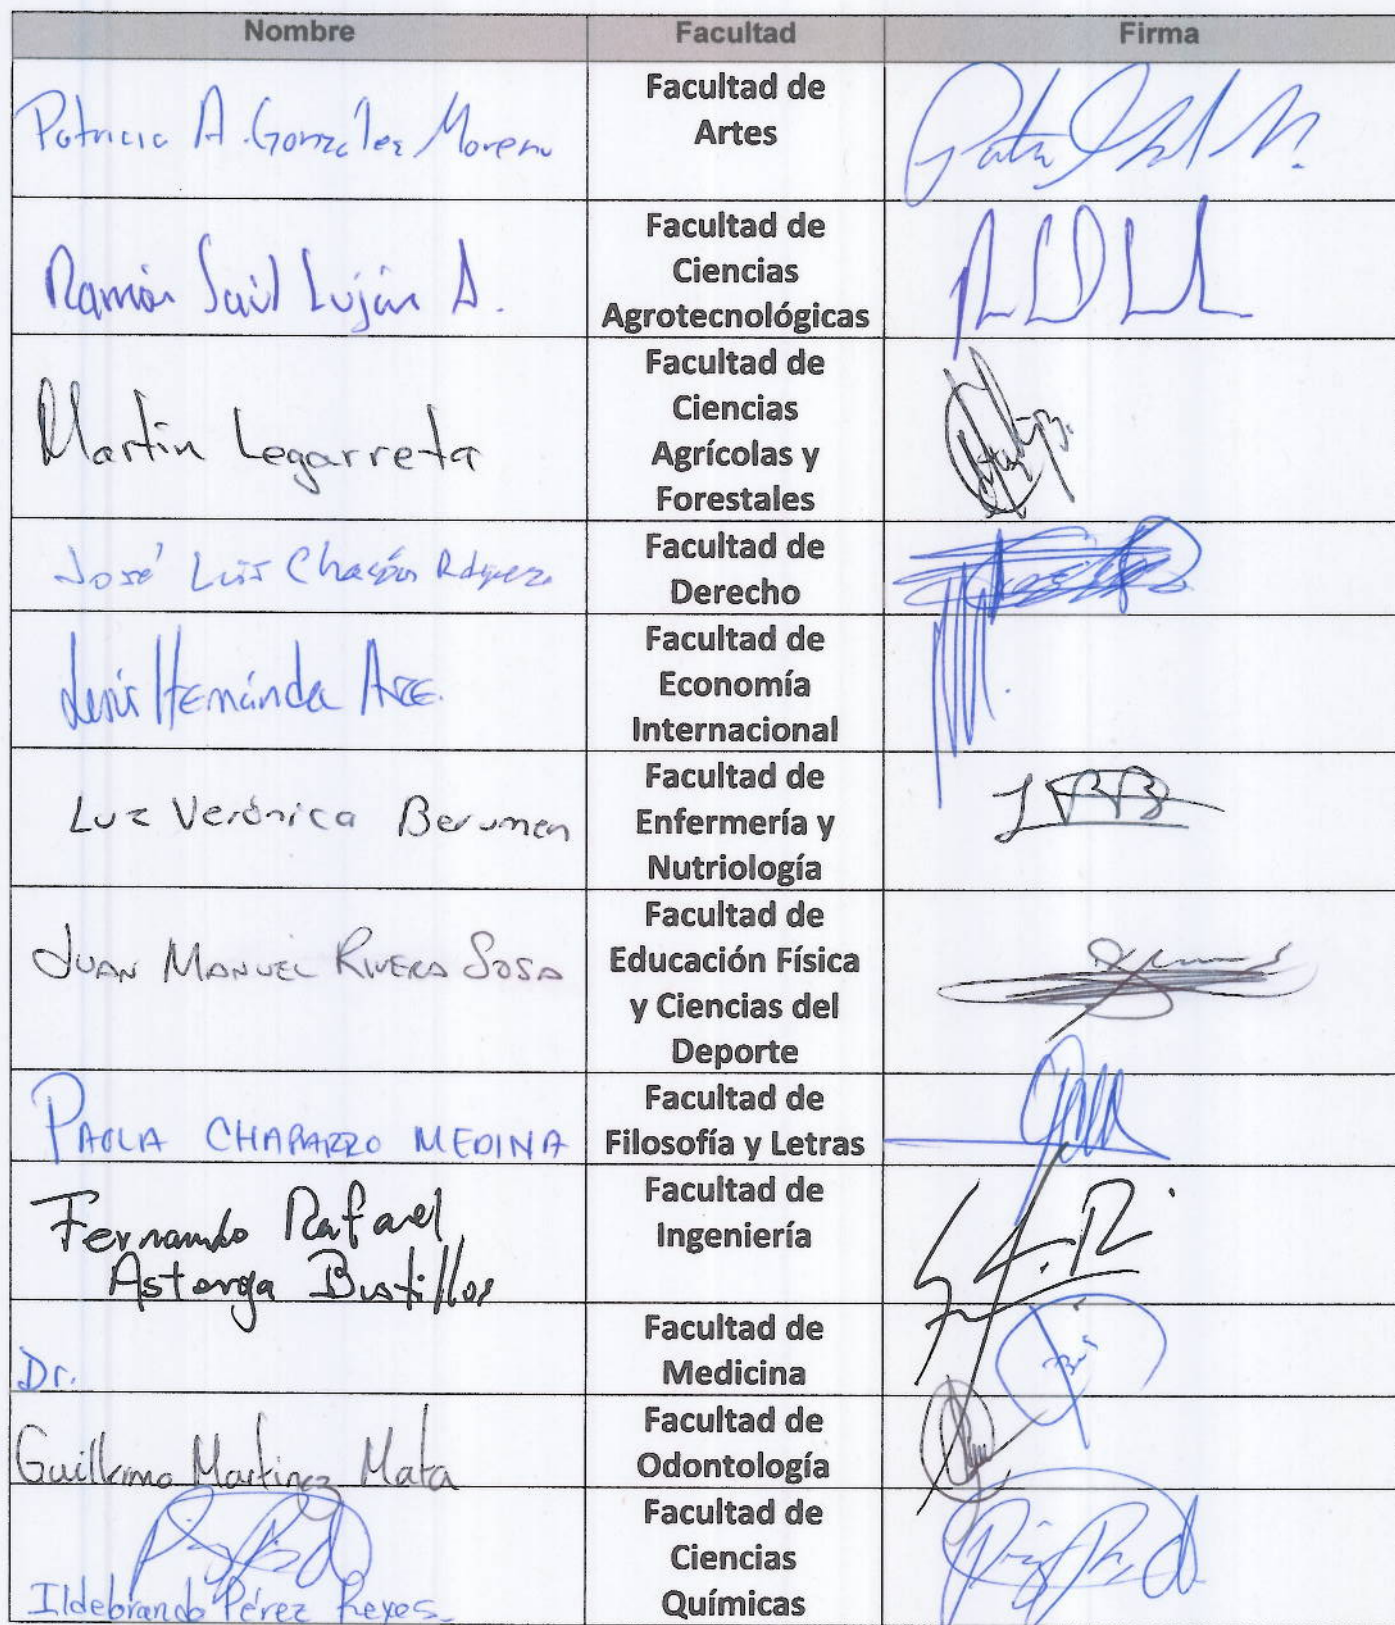 Nombre Facultad Firma
Patricia A. González Moreno
Facultad de
Artes
Ramón Saúl Luján A.
Facultad de
Ciencias
Agrotecnológicas
Martin Legarreta
Facultad de
Ciencias
Agrícolas y
Forestales
José Luis Chacón
Facultad de
Derecho
Luis Hernández Arce.
Facultad de
Economía
Internacional
Luz Verónica Berumen
Facultad de
Enfermería y
Nutriología
JUAN MANUEL RIVERA SOSA
Facultad de
Educación Física
y Ciencias del
Deporte
PAOLA CHAPARRO MEDINA
Facultad de
Filosofía y Letras
Fernando Rafael
Astorga Bustillos
Facultad de
Ingeniería
Dr.
Facultad de
Medicina
Guillermo Martinez Mata
Facultad de
Odontología
Ildebrando Pérez Reyes.
Facultad de
Ciencias
Químicas